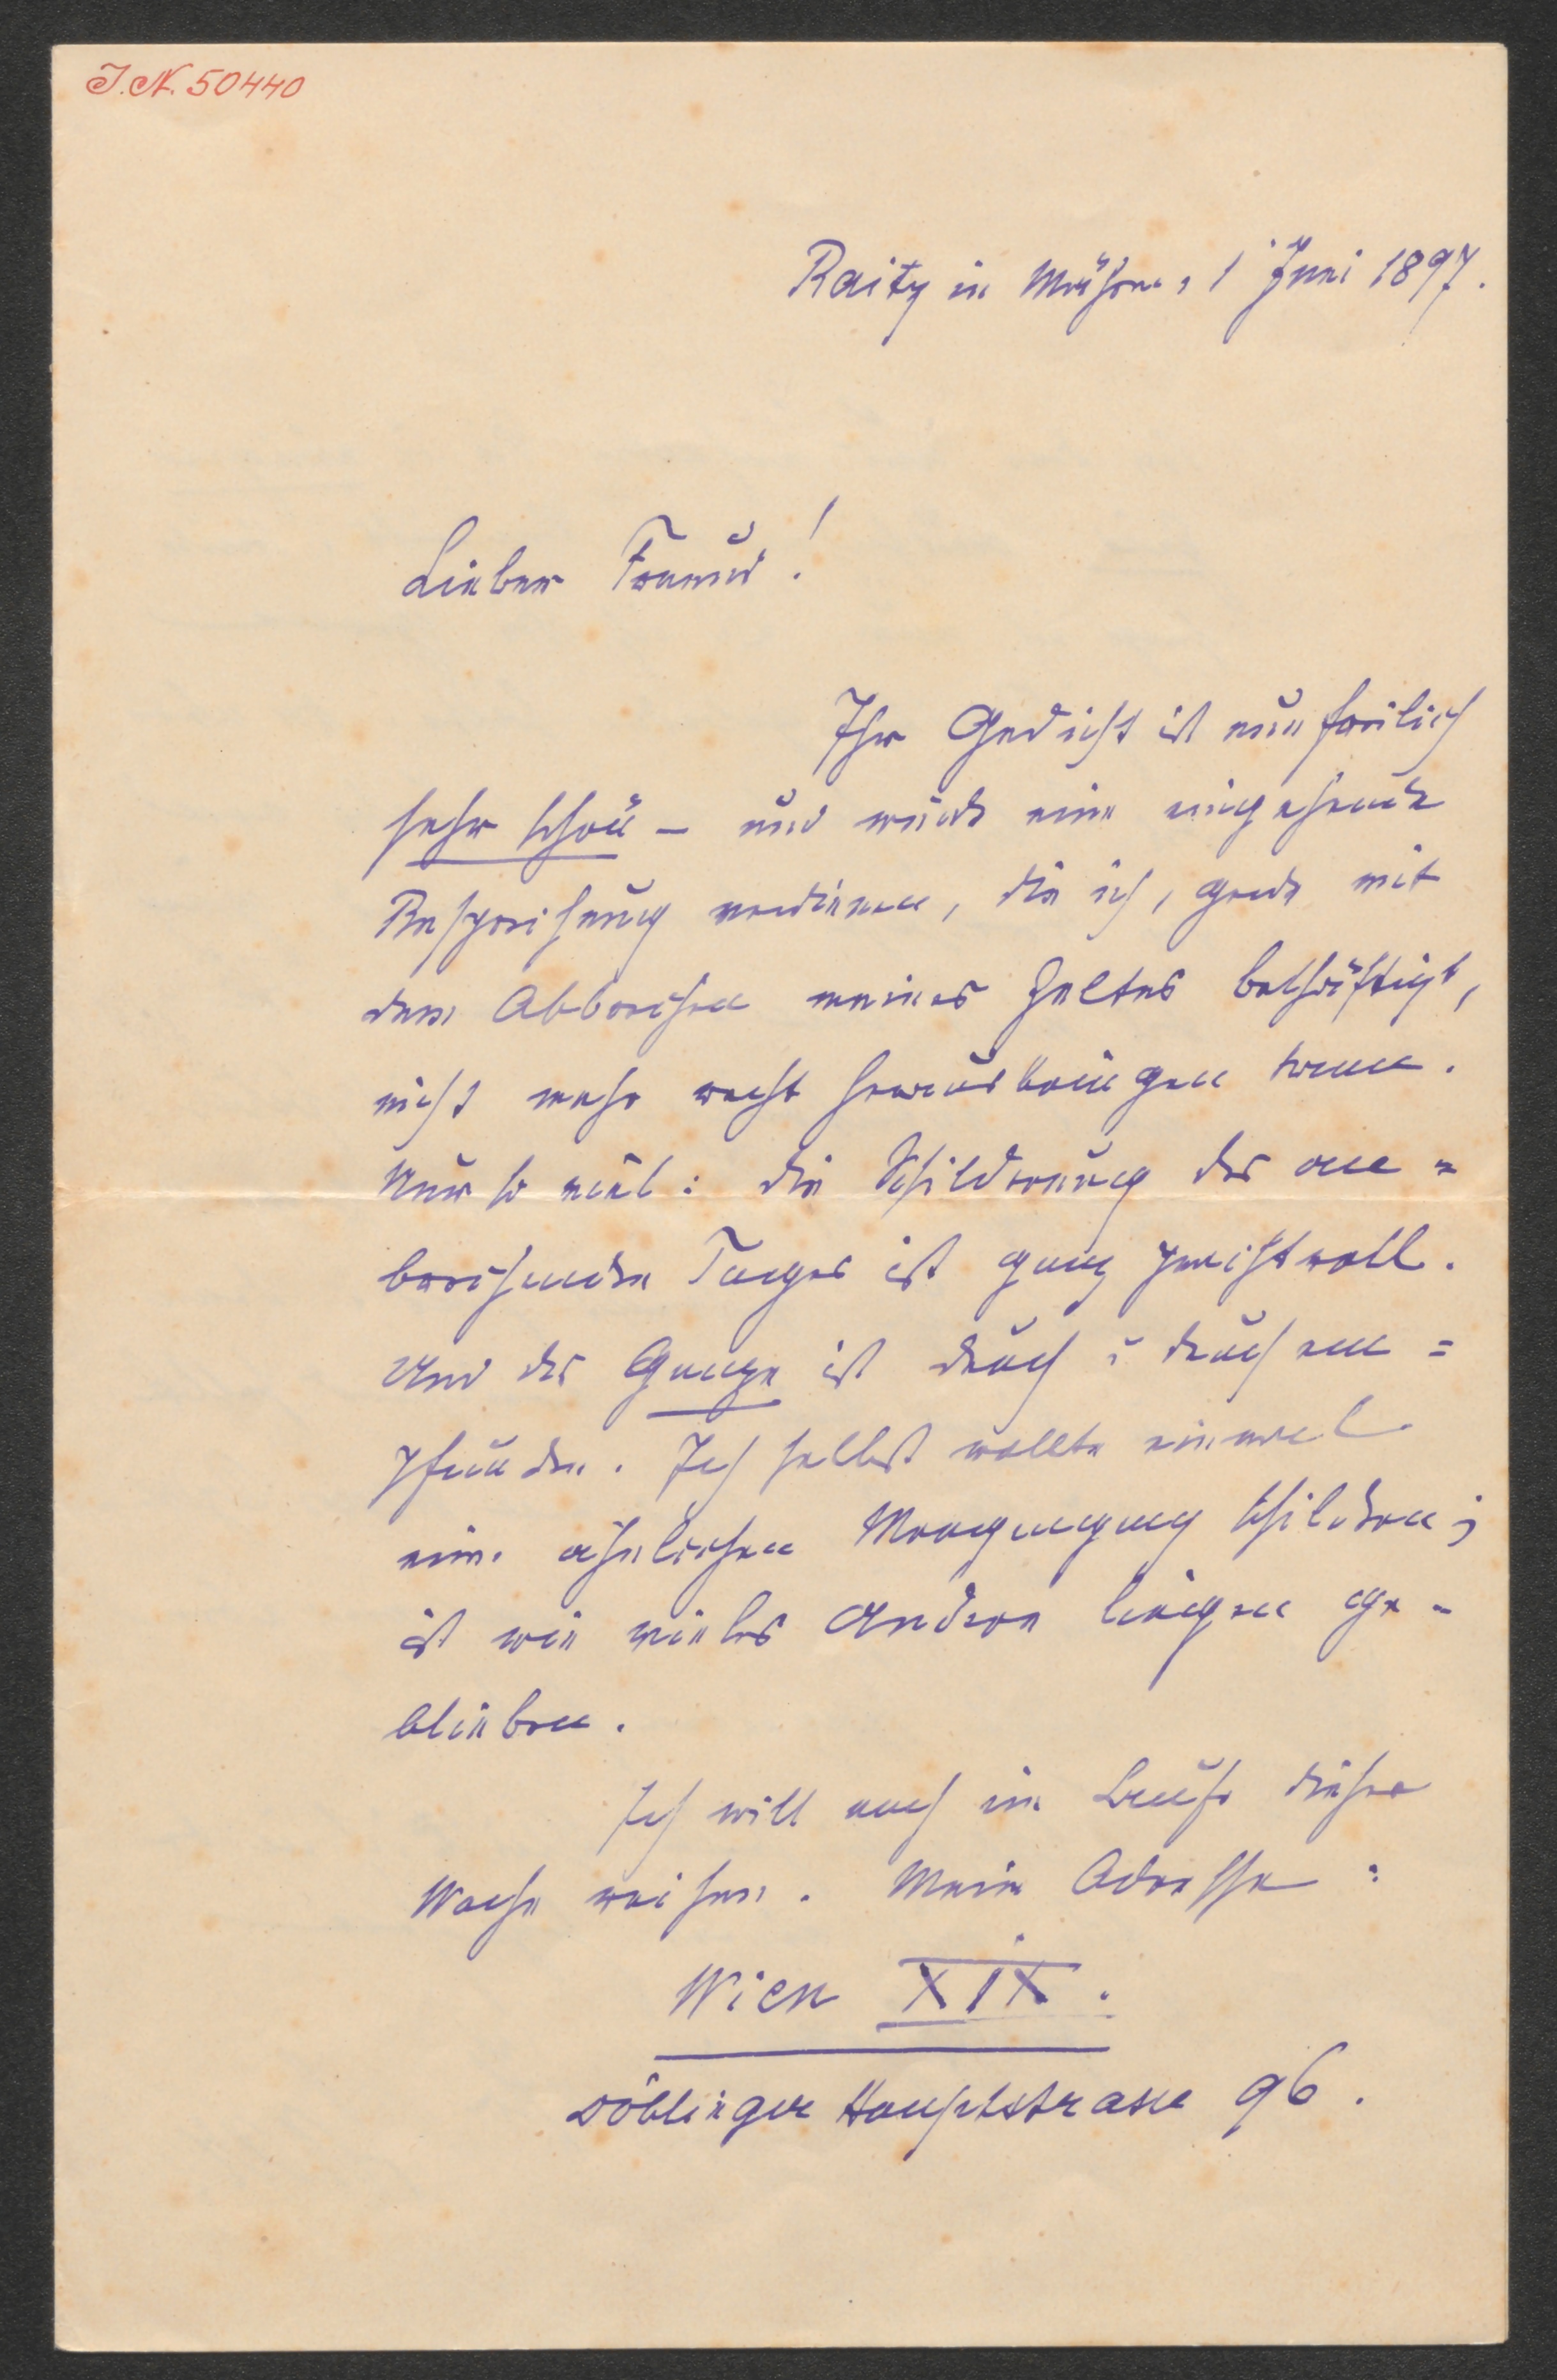 I.N. 50440
Raitz in Mähren, 1 Juni 1897.
Lieber Freund!
Ihr Gedicht ist nun freilich
sehr schön – und würde eine eingehende
Besprechung verdienen, die ich, grade mit
dem Abbrechen meines Zeltes beschäftigt,
nicht mehr recht herausbringen kann.
Nur so viel: die Schilderung des an=
brechenden Tages ist ganz prachtvoll.
Und das Ganze ist durch u durch em=
pfunden. Ich selbst wollte einmal
einen ähnlichen Morgengang schildern;
ist wie vieles Andere liegen ge-
blieben.
Ich will noch im Laufe dieser
Woche reisen. Meine Adresse:
Wien XIX.
Döblinger Hauptstrasse 96.